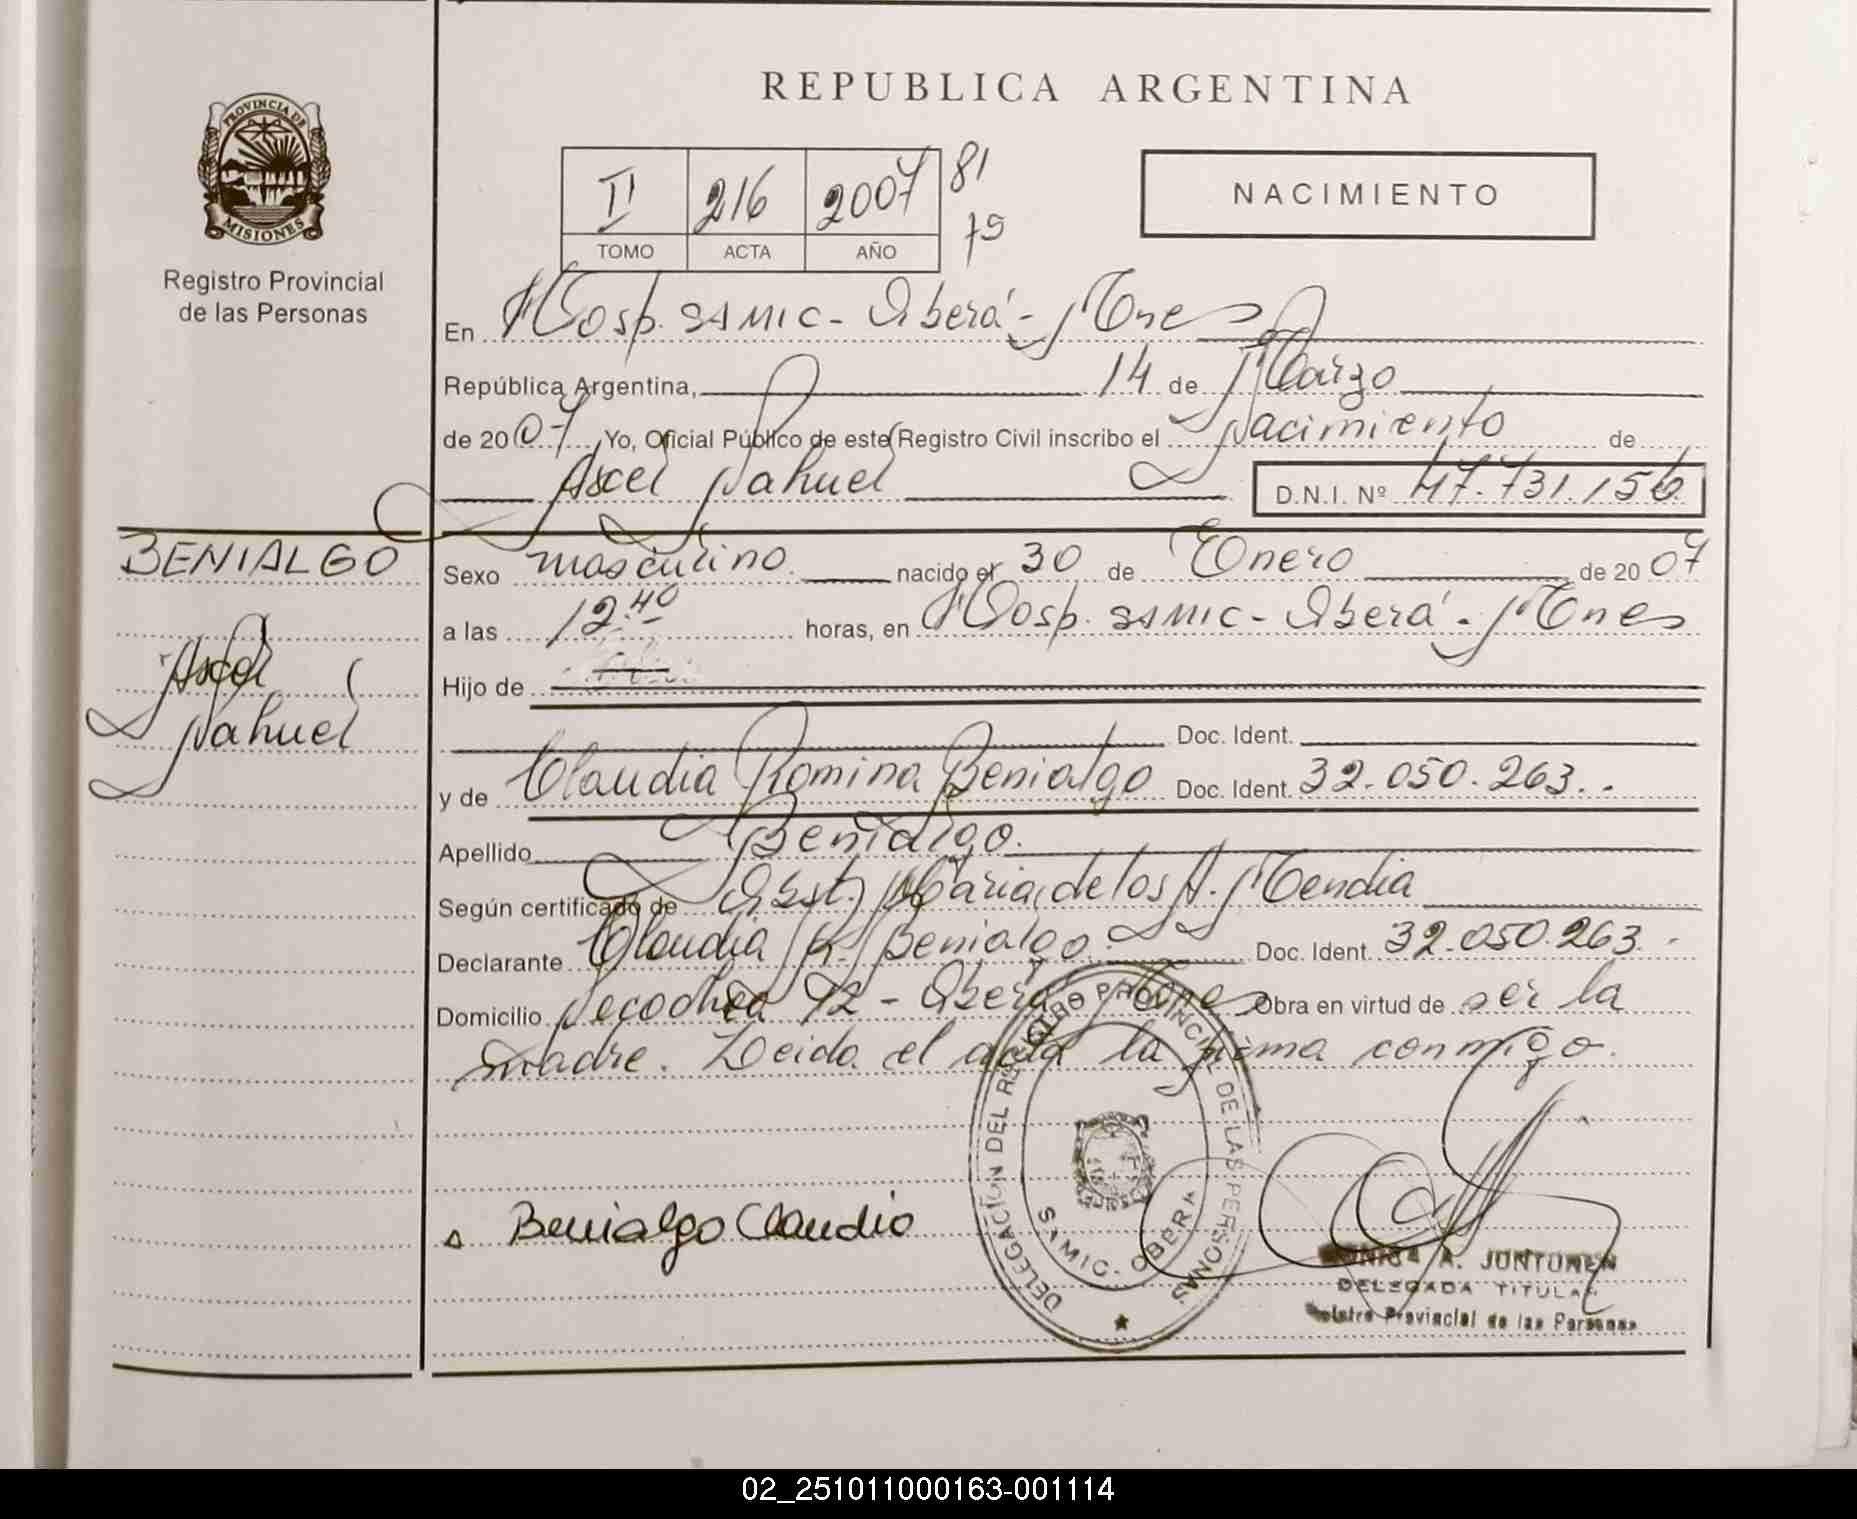 PROVINCIA DE
MISIONES
Registro Provincial
de las Personas
REPUBLICA ARGENTINA
II 216 2007 81
79
TOMO ACTA AÑO
NACIMIENTO
En Hosp. SAMIC - Oberá - Mnes
República Argentina, 14 de Marzo
de 2007 Yo, Oficial Público de este Registro Civil inscribo el Nacimiento de
Axcel Nahuel D.N.I. Nº 47.731.156
BENIALGO
Axcel
Nahuel
Sexo masculino nacido el 30 de Enero de 2007
a las 12.40 horas, en Hosp. SAMIC - Oberá - Mnes
Hijo de
Doc. Ident.
y de Claudia Romina Benialgo Doc. Ident. 32.050.263..
Apellido Benialgo.
Según certificado de Obst. María de los A. Mendia
Declarante Claudia R. Benialgo. Doc. Ident. 32.050.263.-
Domicilio Necochea 92 - Oberá Mnes Obra en virtud de ser la
madre. Leida el acta la firma conmigo.
DELEGACIÓN DEL REGISTRO PROVINCIAL DE LAS PERSONAS
SAMIC. OBERA
Benialgo Claudia
A. JUNTUNEN
DELEGADA TITULAR
Registro Provincial de las Personas
02_251011000163-001114